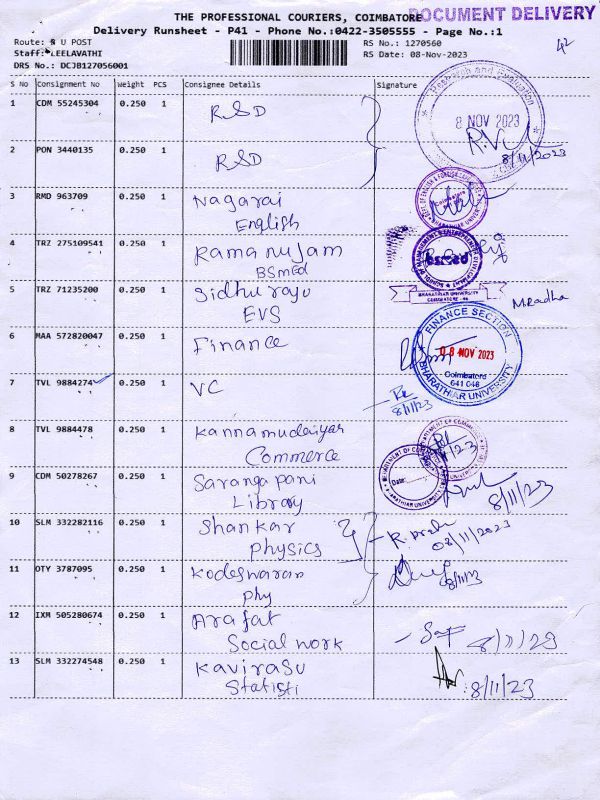 THE PROFESSIONAL COURIERS, COIMBATORE
DOCUMENT DELIVERY
Delivery Runsheet - P41 - Phone No.:0422-3505555 - Page No.:1
Route: U POST
RS No.: 1270560
42
Staff: LEELAVATHI
RS Date: 08-Nov-2023
DRS No.: DCJB127056001
S No Consignment No Weight PCS Consignee Details Signature
1 CDM 55245304 0.250 1 RSD
Research and Evaluation
8 NOV 2023
8/11/2023
2 PON 3440135 0.250 1 RSD
3 RMD 963709 0.250 1 Nagarai
English
4 TRZ 275109541 0.250 1 Ramanujam
BSmed
5 TRZ 71235200 0.250 1 Sidhuraju
EVS
BHARATHIAR UNIVERSITY
COIMBATORE - 46
M.Radha
6 MAA 572820047 0.250 1 Finance
FINANCE SECTION
08 NOV 2023
Coimbatore
641 046
BHARATHIAR UNIVERSITY
7 TVL 9884274 0.250 1 VC
8/11/23
8 TVL 9884478 0.250 1 Kannamudaiyar
Commerce
9 CDM 50278267 0.250 1 Sarangapani
Library
Date:
8/11/23
10 SLM 332282116 0.250 1 Shankar
Physics
08/11/2023
11 OTY 3787095 0.250 1 Kodeswaran
Phy
8/11/23
12 IXM 505280674 0.250 1 Arafat
Social work
8/11/23
13 SLM 332274548 0.250 1 Kavirasu
Statisti
8/11/23